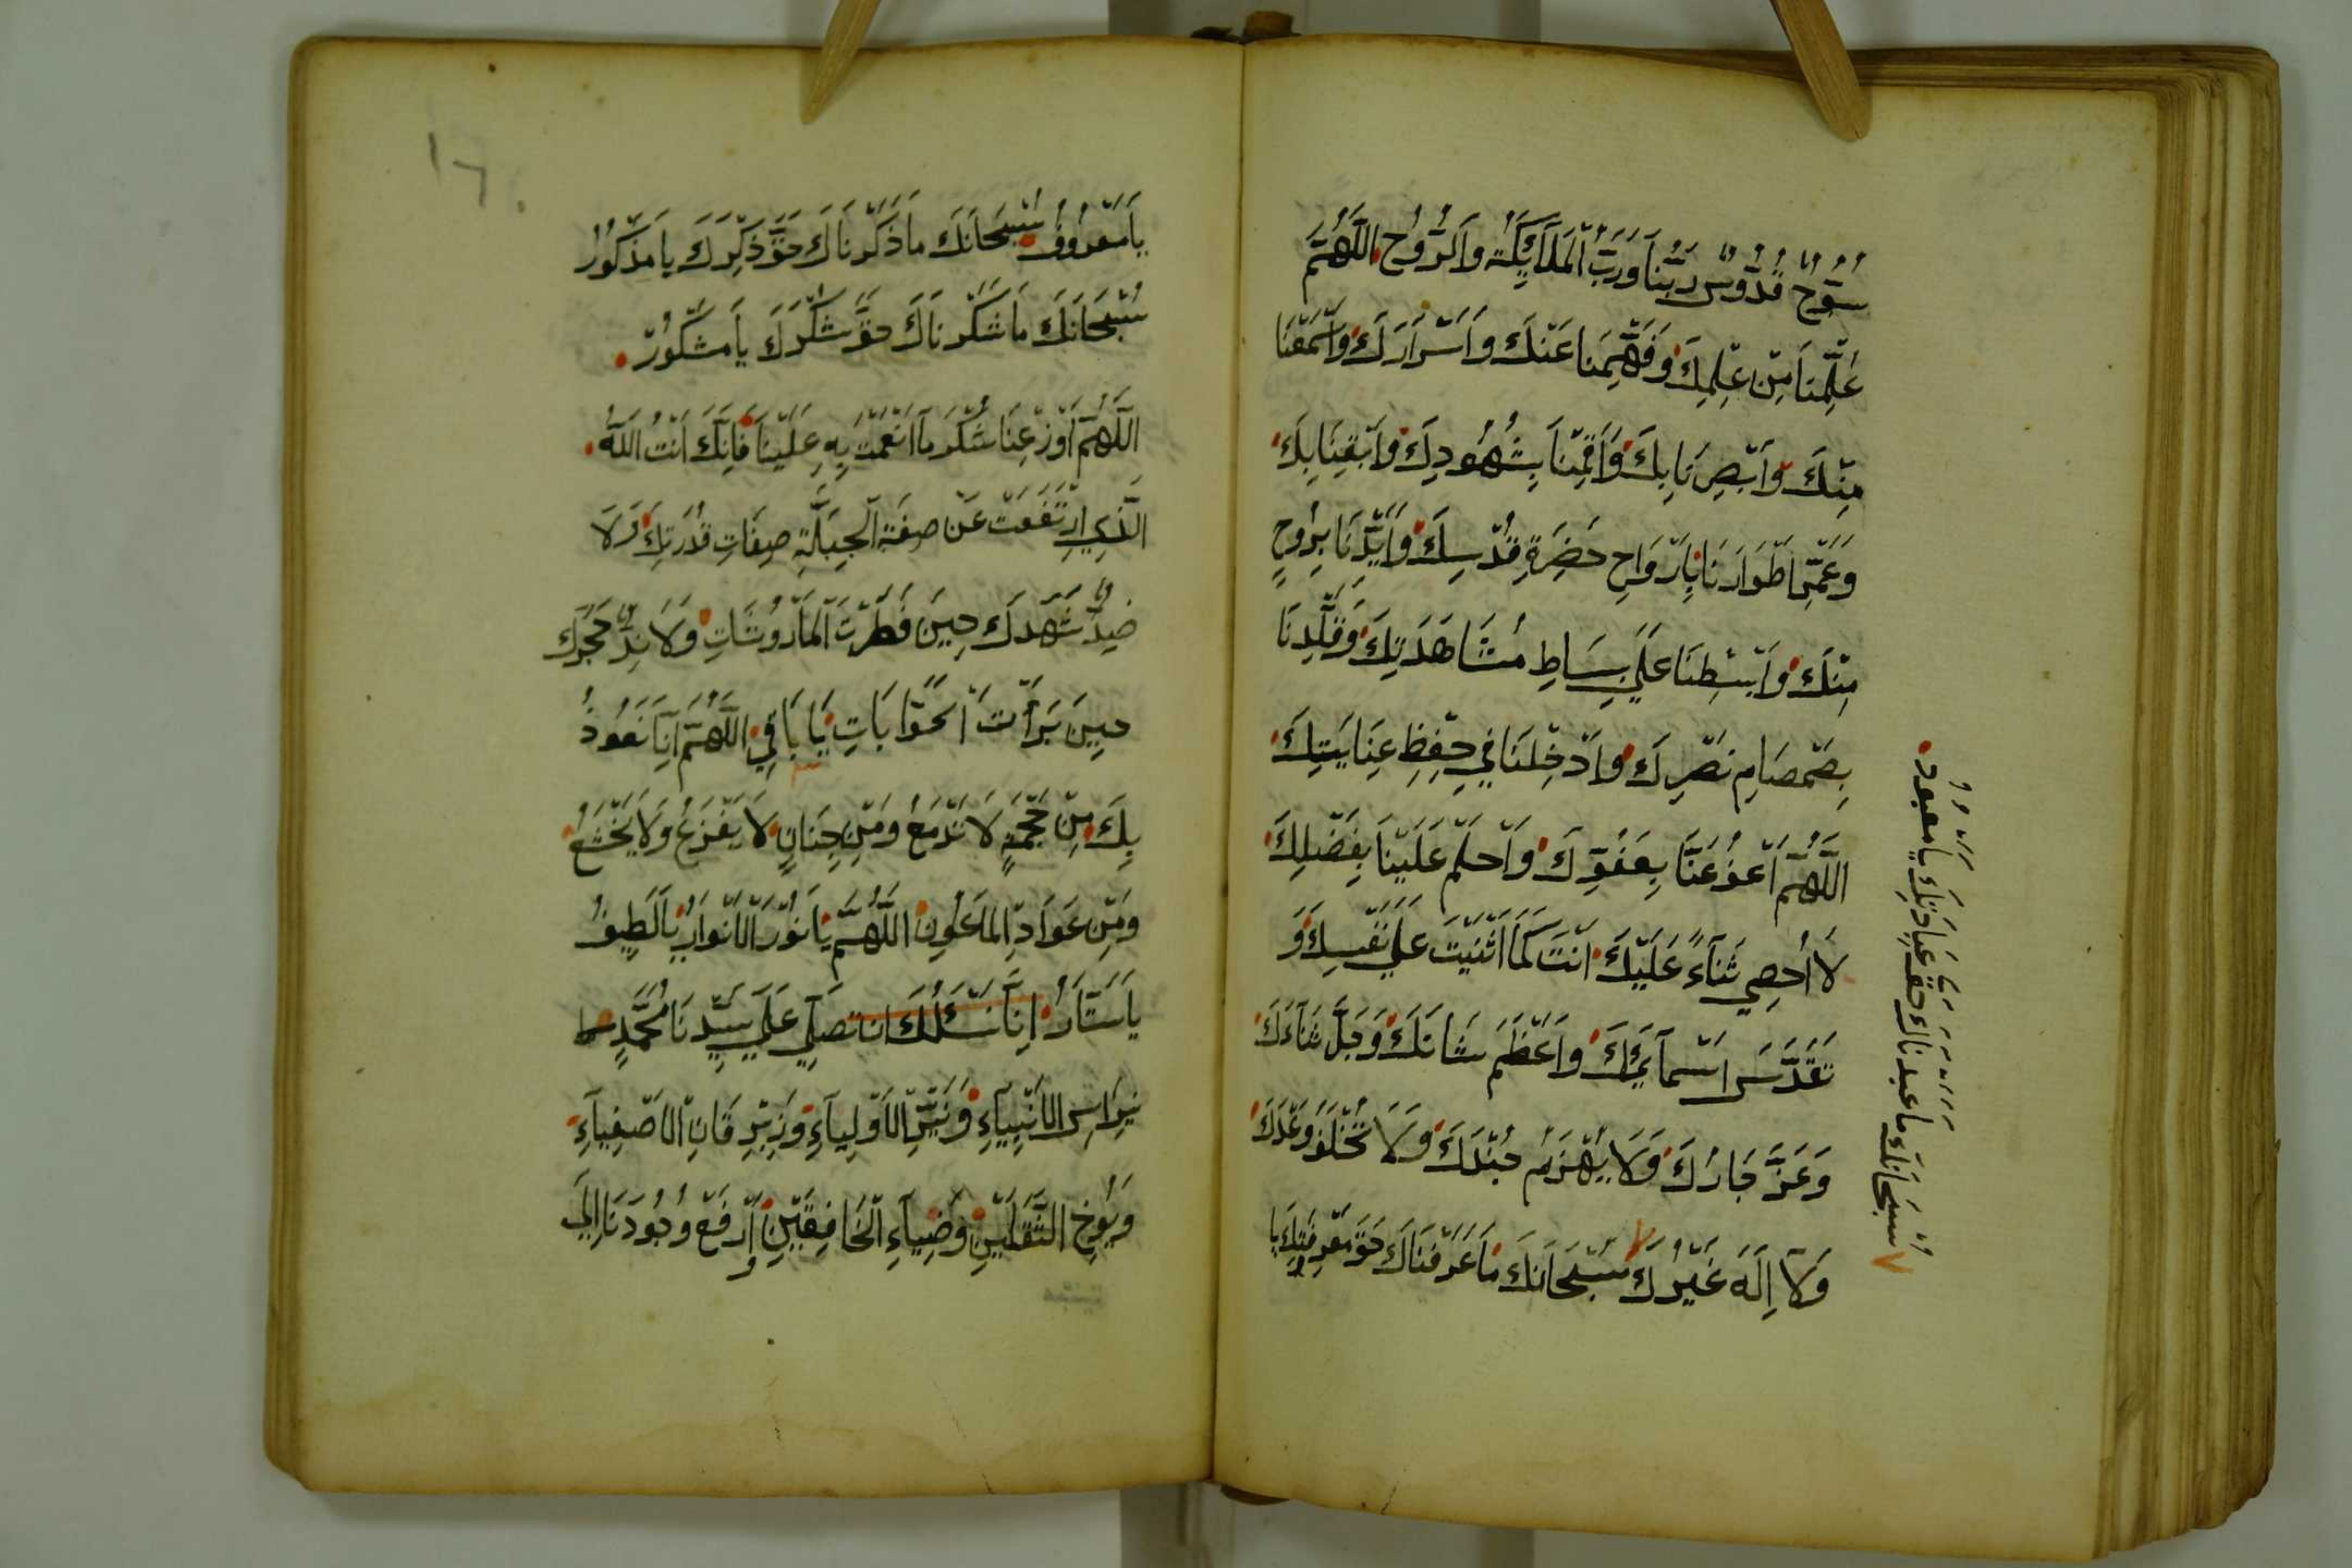 سُبُّوحٌ قُدُّوسٌ رَبُّنَا وَرَبُّ الْمَلَآئِكَةِ وَالرُّوحِ اللَّهُمَّ
عَلِّمْنَا مِنْ عِلْمِكَ وَفَهِّمْنَا عَنْكَ وَأَسْرَارَكَ وَاَسْمِعْنَا
مِنْكَ وَاَبْصِرْنَا بِكَ وَاَقِمْنَا بِشُهُودِكَ وَاَبْقِنَا بِكَ
وَعَمِّرْ اَطْوَارَنَا بِاَرْوَاحِ حَضْرَةِ قُدْسِكَ وَاَيِّدْنَا بِرُوحٍ
مِنْكَ وَابْسُطْنَا عَلَى بِسَاطِ مُشَاهَدَتِكَ وَقَلِّدْنَا
بِصَمْصَامِ نَصْرِكَ وَاَدْخِلْنَا فِي حِفْظِ عِنَايَتِكَ
اللَّهُمَّ اعْفُ عَنَّا بِعَفْوِكَ وَاحْلُمْ عَلَيْنَا بِفَضْلِكَ
لَا اُحْصِي ثَنَآءً عَلَيْكَ اَنْتَ كَمَا اَثْنَيْتَ عَلَى نَفْسِكَ وَ
تَقَدَّسَ اَسْمَآئُكَ وَاَعْظَمَ شَانَكَ وَجَلَّ ثَنَآءَكَ
وَعَزَّ جَارُكَ وَلَا يُهْزَمُ جُنْدَكَ وَلَا تُخْلَفُ وَعْدَكَ
وَلَا اِلَهَ غَيْرُكَ سُبْحَانَكَ مَا عَرَفْنَاكَ حَقَّ مَعْرِفَتِكَ يَا
سُبْحَانَكَ مَا عَبَدْنَاكَ حَقَّ عِبَادَتِكَ يَا مَعْبُودُ
١٦٠
يَا مَعْرُوفُ سُبْحَانَكَ مَا ذَكَرْنَاكَ حَقَّ ذِكْرِكَ يَا مَذْكُورُ
سُبْحَانَكَ مَا شَكَرْنَاكَ حَقَّ شُكْرِكَ يَا مَشْكُورُ
اللَّهُمَّ اَوْزِعْنَا شُكْرَ مَآ اَنْعَمْتَ بِهِ عَلَيْنَا فَاِنَّكَ اَنْتَ اللَّهُ
الَّذِي ارْتَفَعَتْ عَنْ صِفَةِ الْجِبِلَّةِ صِفَاتِ قُدْرَتِكَ وَلَا
ضِدٌّ شَهِدَكَ حِينَ فَطَرْتَ الْمَأْرُوشَاتِ وَلَا نِدٌّ حَجَرَكَ
حِينَ بَرَأْتَ الْحَوَّابَاتِ يَا بَاقِي اللَّهُمَّ اِنَّا نَعُوذُ
بِكَ مِنْ جَحْمَةٍ لَا تَدْمَعُ وَمِنْ جَنَانٍ لَا يَفْزَعُ وَلَا يَخْشَعُ
وَمِنْ عَوَادِّ الْمَاعُونِ اللَّهُمَّ يَا نُورَ الْاَنْوَارِ يَا لَطِيفُ
يَا سَتَّارُ اِنَّا نَسْئَلُكَ اَنْ تُصَلِّيَ عَلَى سَيِّدِنَا مُحَمَّدٍ
نِبْرَاسِ الْاَنْبِيَآءِ وَنَيِّرِ الْاَوْلِيَآءِ وَزِبْرِقَانِ الْاَصْفِيَآءِ
وَيُوحِ الثَّقَلَيْنِ وَضِيَآءِ الْخَافِقَيْنِ وَارْفَعْ وُجُودَنَا اِلَى